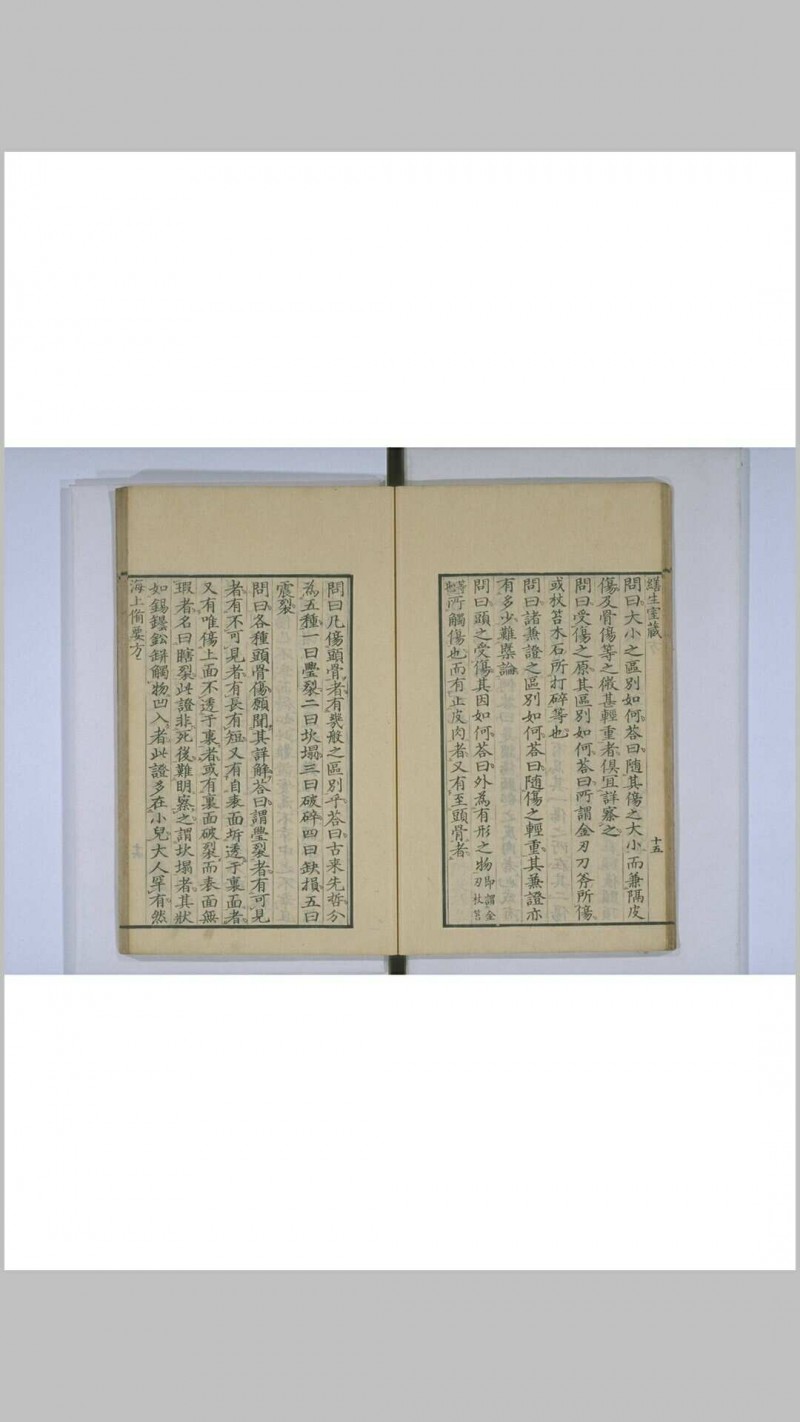 繕生室藏
問曰大小之區別如何荅曰隨其傷之大小而兼隔皮
傷及骨傷等之微甚輕重者俱宜詳察之
問曰受傷之原其區別如何荅曰所謂金刃刀斧所傷
或杖苔木石所打碎等也
問曰諸兼證之區別如何荅曰隨傷之輕重其兼證亦
有多少難槩論
問曰頭之受傷其因如何荅曰外為有形之物即謂金刃杖苔
等所觸傷也而有止皮肉者又有至頭骨者
十五
問曰凡傷頭骨者有幾般之區別乎荅曰古来先哲分
為五種一曰璺裂二曰坎塌三曰破碎四曰缺損五曰
震裂
問曰各種頭骨傷願聞其詳解荅曰謂璺裂者有可見
者有不可見者有長有短又有自表面坼透于裏面者
又有唯傷上面不透于裏者或有裏面破裂而表面無
瑕者名曰瞎裂此證非死後難明察之謂坎塌者其狀
如錫鑞鈆缾觸物凹入者此證多在小兒大人罕有然
海上偷要方